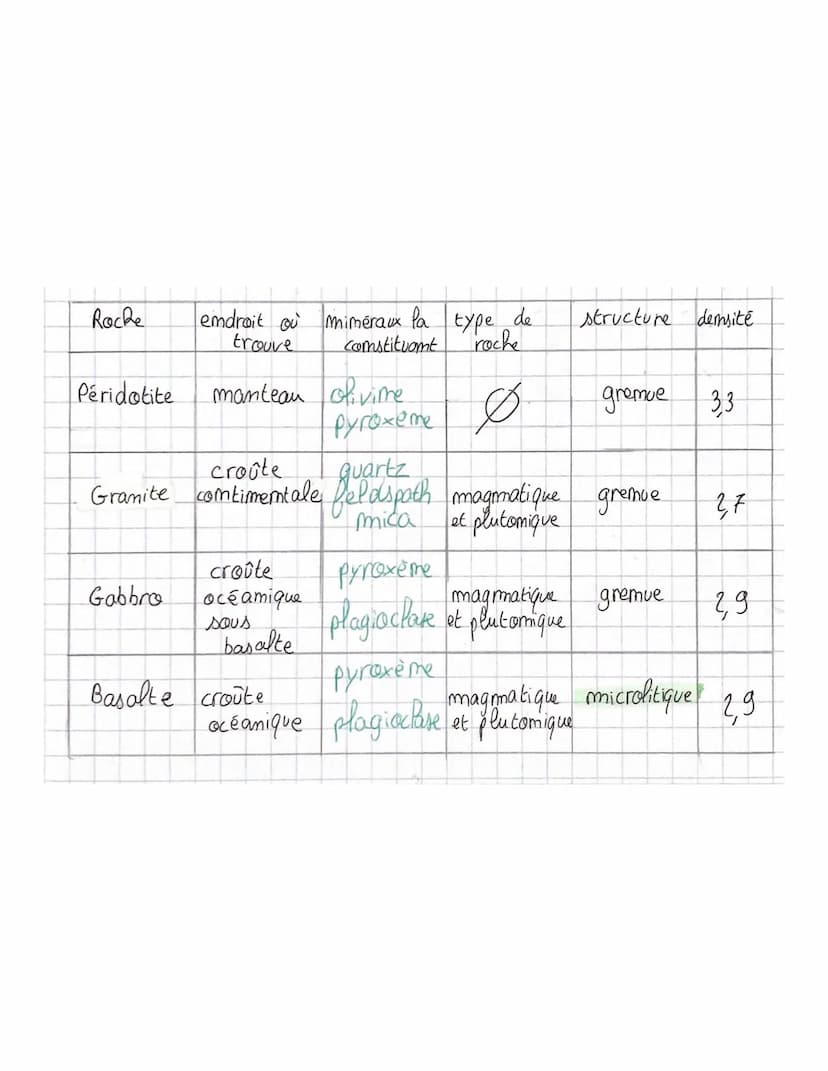 Roche
endroit où
trouve
minéraux la
constituant
type de
roche
structure
densité
Péridotite
manteau
olivine
pyroxène
Ø
grenue
3,3
Granite
croûte
continentale
quartz
feldspath
mica
magmatique
et plutonique
grenue
2,7
Gabbro
croûte
océanique
sous
basalte
pyroxène
plagioclase
magmatique
et plutonique
grenue
2,9
Basalte
croûte
océanique
pyroxène
plagioclase
magmatique
et plutonique
microlitique
2,9